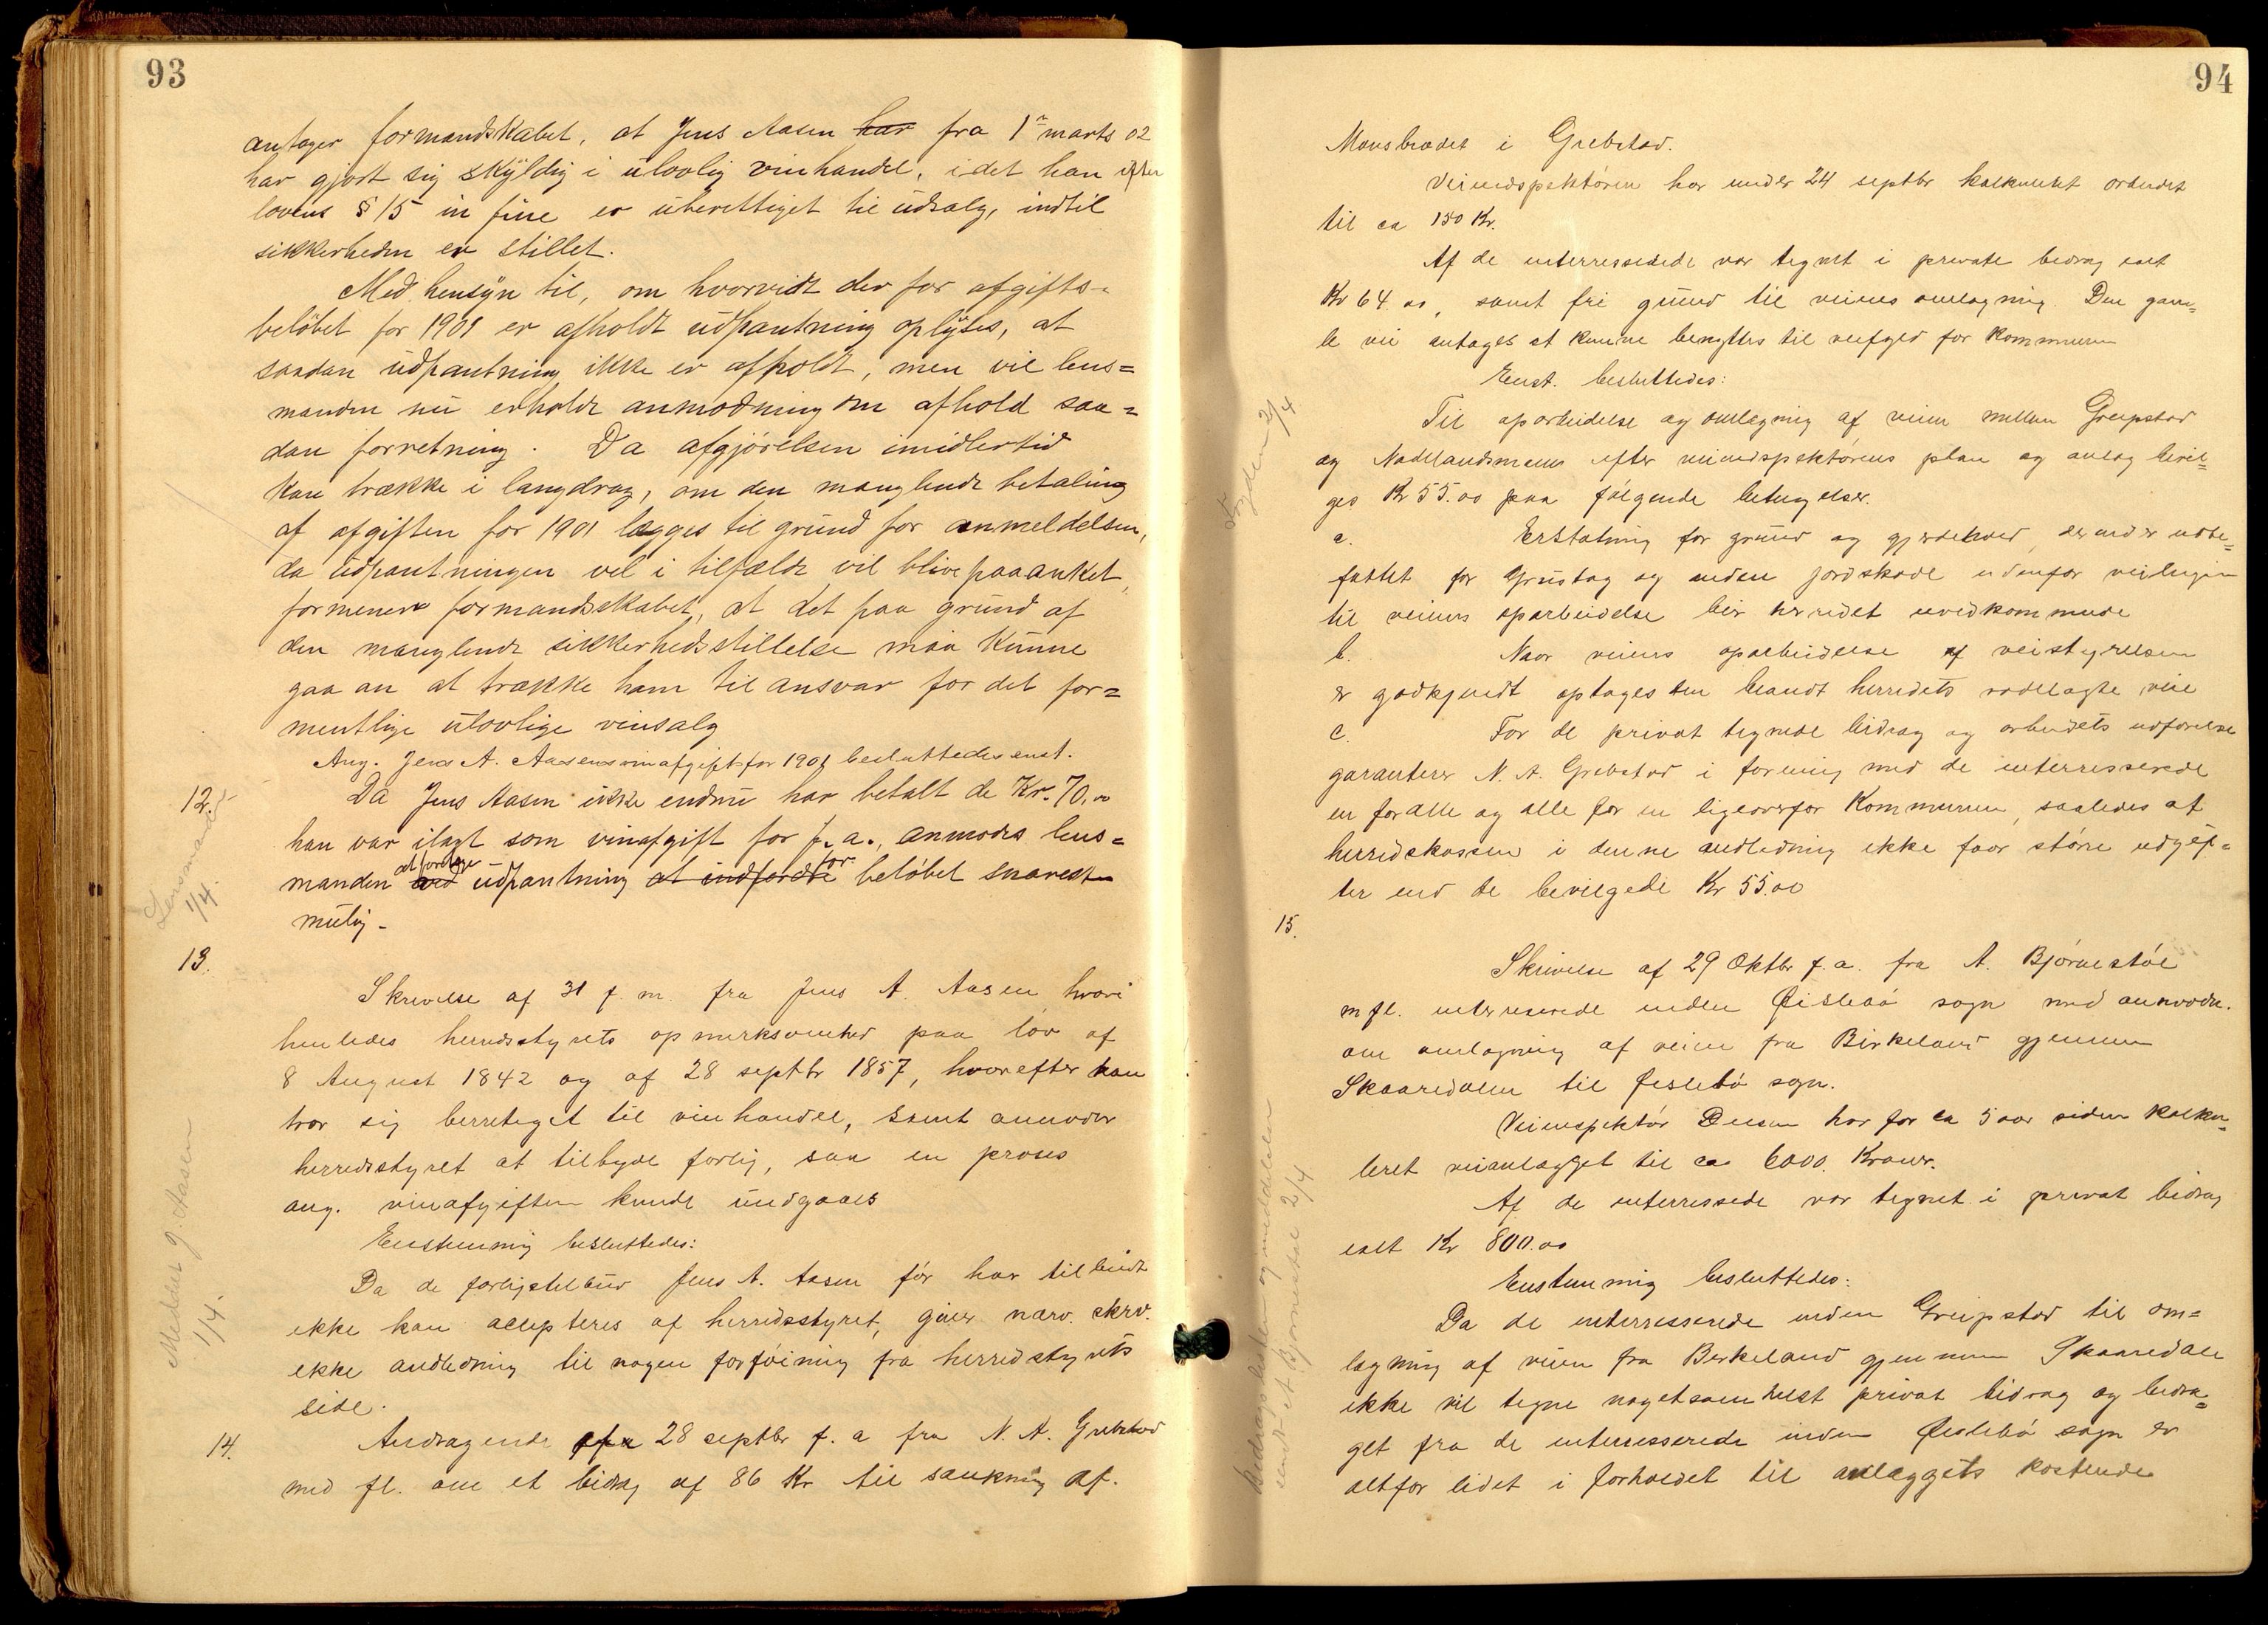 93
antager formandskabet, at Jens Aasen har fra 1ᵉ marts 02
har gjort sig skyldig i ulovlig vinhandel, i det han efter
lovens § 15 in fine er uberettiget til udsalg, indtil
sikkerheden er stillet.
Med hensyn til, om hvorvidt der for afgifts-
beløbet for 1901 er afholdt udpantning oplystes, at
saadan udpantning ikke er afholdt, men vil lens=
manden nu erholde anmodning om afhold saa=
dan forretning. Da afgjørelsen imidlertid
kan trække i langdrag, om den manglende betaling
af afgiften for 1901 lægges til grund for anmeldelsen,
da udpantningen vel i tilfælde vil blive paaanket,
formener formandsskabet, at det paa grund af
den manglende sikkerhedsstillelse maa kunne
gaa an at trække ham til ansvar for det for=
mentlige ulovlige vinsalg
Ang. Jens A. Aasens vinafgift for 1901 besluttedes enst.
12. Da Jens Aasen ikke endnu har betalt de Kr. 70,00
han var ilagt som vinafgift for f. a., anmodes lens=
manden ved at foretage udpantning at indfordre for beløbet snarest
mulig.
Lensmand
1/4.
13.
Skrivelse af 31 f. m. fra Jens A. Aasen hvori
henledes herredsstyrets opmerksomhed paa lov af
8 August 1842 og af 28 septbr 1857, hvorefter han
tror sig berretiget til vinhandel, samt anmoder
herredsstyret at tilbyde forlig, saa en proses
ang. vinafgiften kunde undgaaes
Enstemmig besluttedes:
Da de forligstilbud Jens A. Aasen før har tilbudt
ikke kan accepteres af herredsstyret, giver nærv. skriv.
ikke andledning til nogen forføining fra herredstyrets
side.
Meddelt J. Aasen
1/4.
14. Andragende af 28 septbr f. a fra N. A. Grebstad
med fl. om et bidrag af 86 Kr til sænkning af.
94
Monsbrødet i Grebstad.
Veiindspektøren har under 24 septbr kalkuleret arbeidet
til ca 150 Kr.
Af de interresserede var tegnet i private bidrag ialt
Kr 64.00, samt fri grund til veiens omlægning. Den gam=
le vei antages at kunne benyttes til veifyld for kommunen
Enst. besluttedes:
Til oparbeidelse og omlægning af veien mellem Greipstad
og Nodelandsmoen efter veiindspektørens plan og anlæg bevil=
ges Kr 55.00 paa følgende betingelser.
a. Erstatning for grund og gjerdehold, derunder indbe=
fattet for grustag og anden jordskade udenfor veilinjen
til veiens oparbeidelse blir herredet uvedkommende
b. Naar veiens oparbeidelse af veistyrelsen
er godkjendt optages den blandt herredets rodelagte veie
c. For de privat tegnede bidrag og arbeidets udførelse
garanterer N. A. Grebstad i forening med de interresserede
en for alle og alle for en ligeoverfor kommunen, saaledes at
herredskassen i denne andledning ikke faar større udgif=
ter end de bevilgede Kr 55.00
Fogden 2/4
15.
Skrivelse af 29 Oktbr f.a. fra A. Bjørnestøl
m fl. interesserede inden Øislebø sogn med anmodn.
om omlægning af veien fra Birkeland gjennem
Skaaredalen til Øislebø sogn.
Veiinspektør Deesen har for ca 5 aar siden kalku=
leret veianlægget til ca 6000. Kroner.
Af de interressede var tegnet i privat bidrag
ialt Kr 800.00
Enstemmig besluttedes:
Da de interresserede inden Greipstad til om=
lægning af veien fra Berkeland gjennem Skaaredale
ikke vil tegne nogetsomhelst privat bidrag og bidra=
get fra de interesserede inden Øislebø sogn er
altfor lidet i forholdet til anlæggets kostende
Bidragslisten og meddelelsen
sendt A Bjørnestøl 2/4